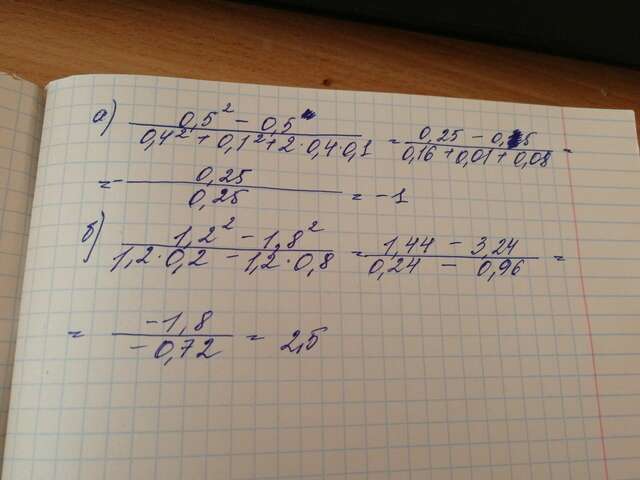 а) (0,5² - 0,5)/(0,4² + 0,1² + 2·0,4·0,1) = (0,25 - 0,5)/(0,16 + 0,01 + 0,08) =
= - 0,25/0,25 = -1
б) (1,2² - 1,8²)/(1,2·0,2 - 1,2·0,8) = (1,44 - 3,24)/(0,24 - 0,96) =
= -1,8/-0,72 = 2,5